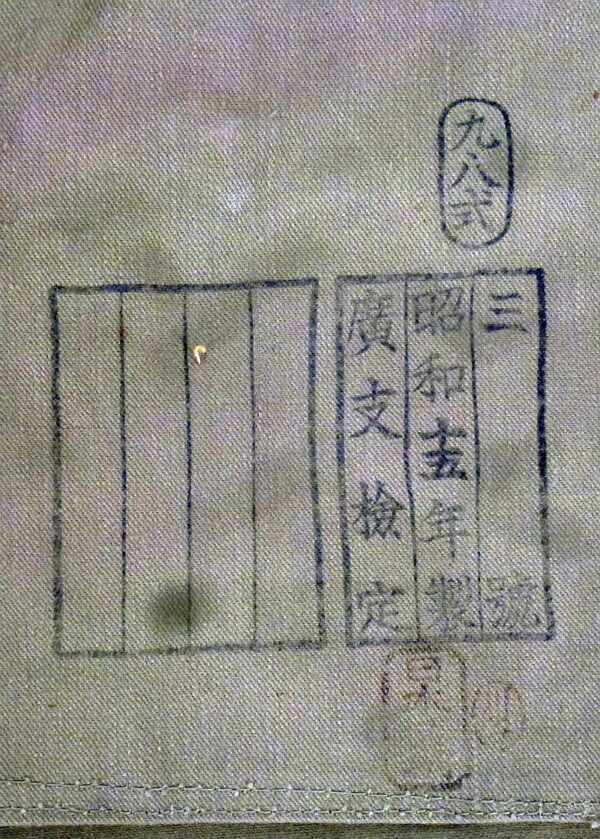 九八式
三號
昭和十五年製
廣支檢定